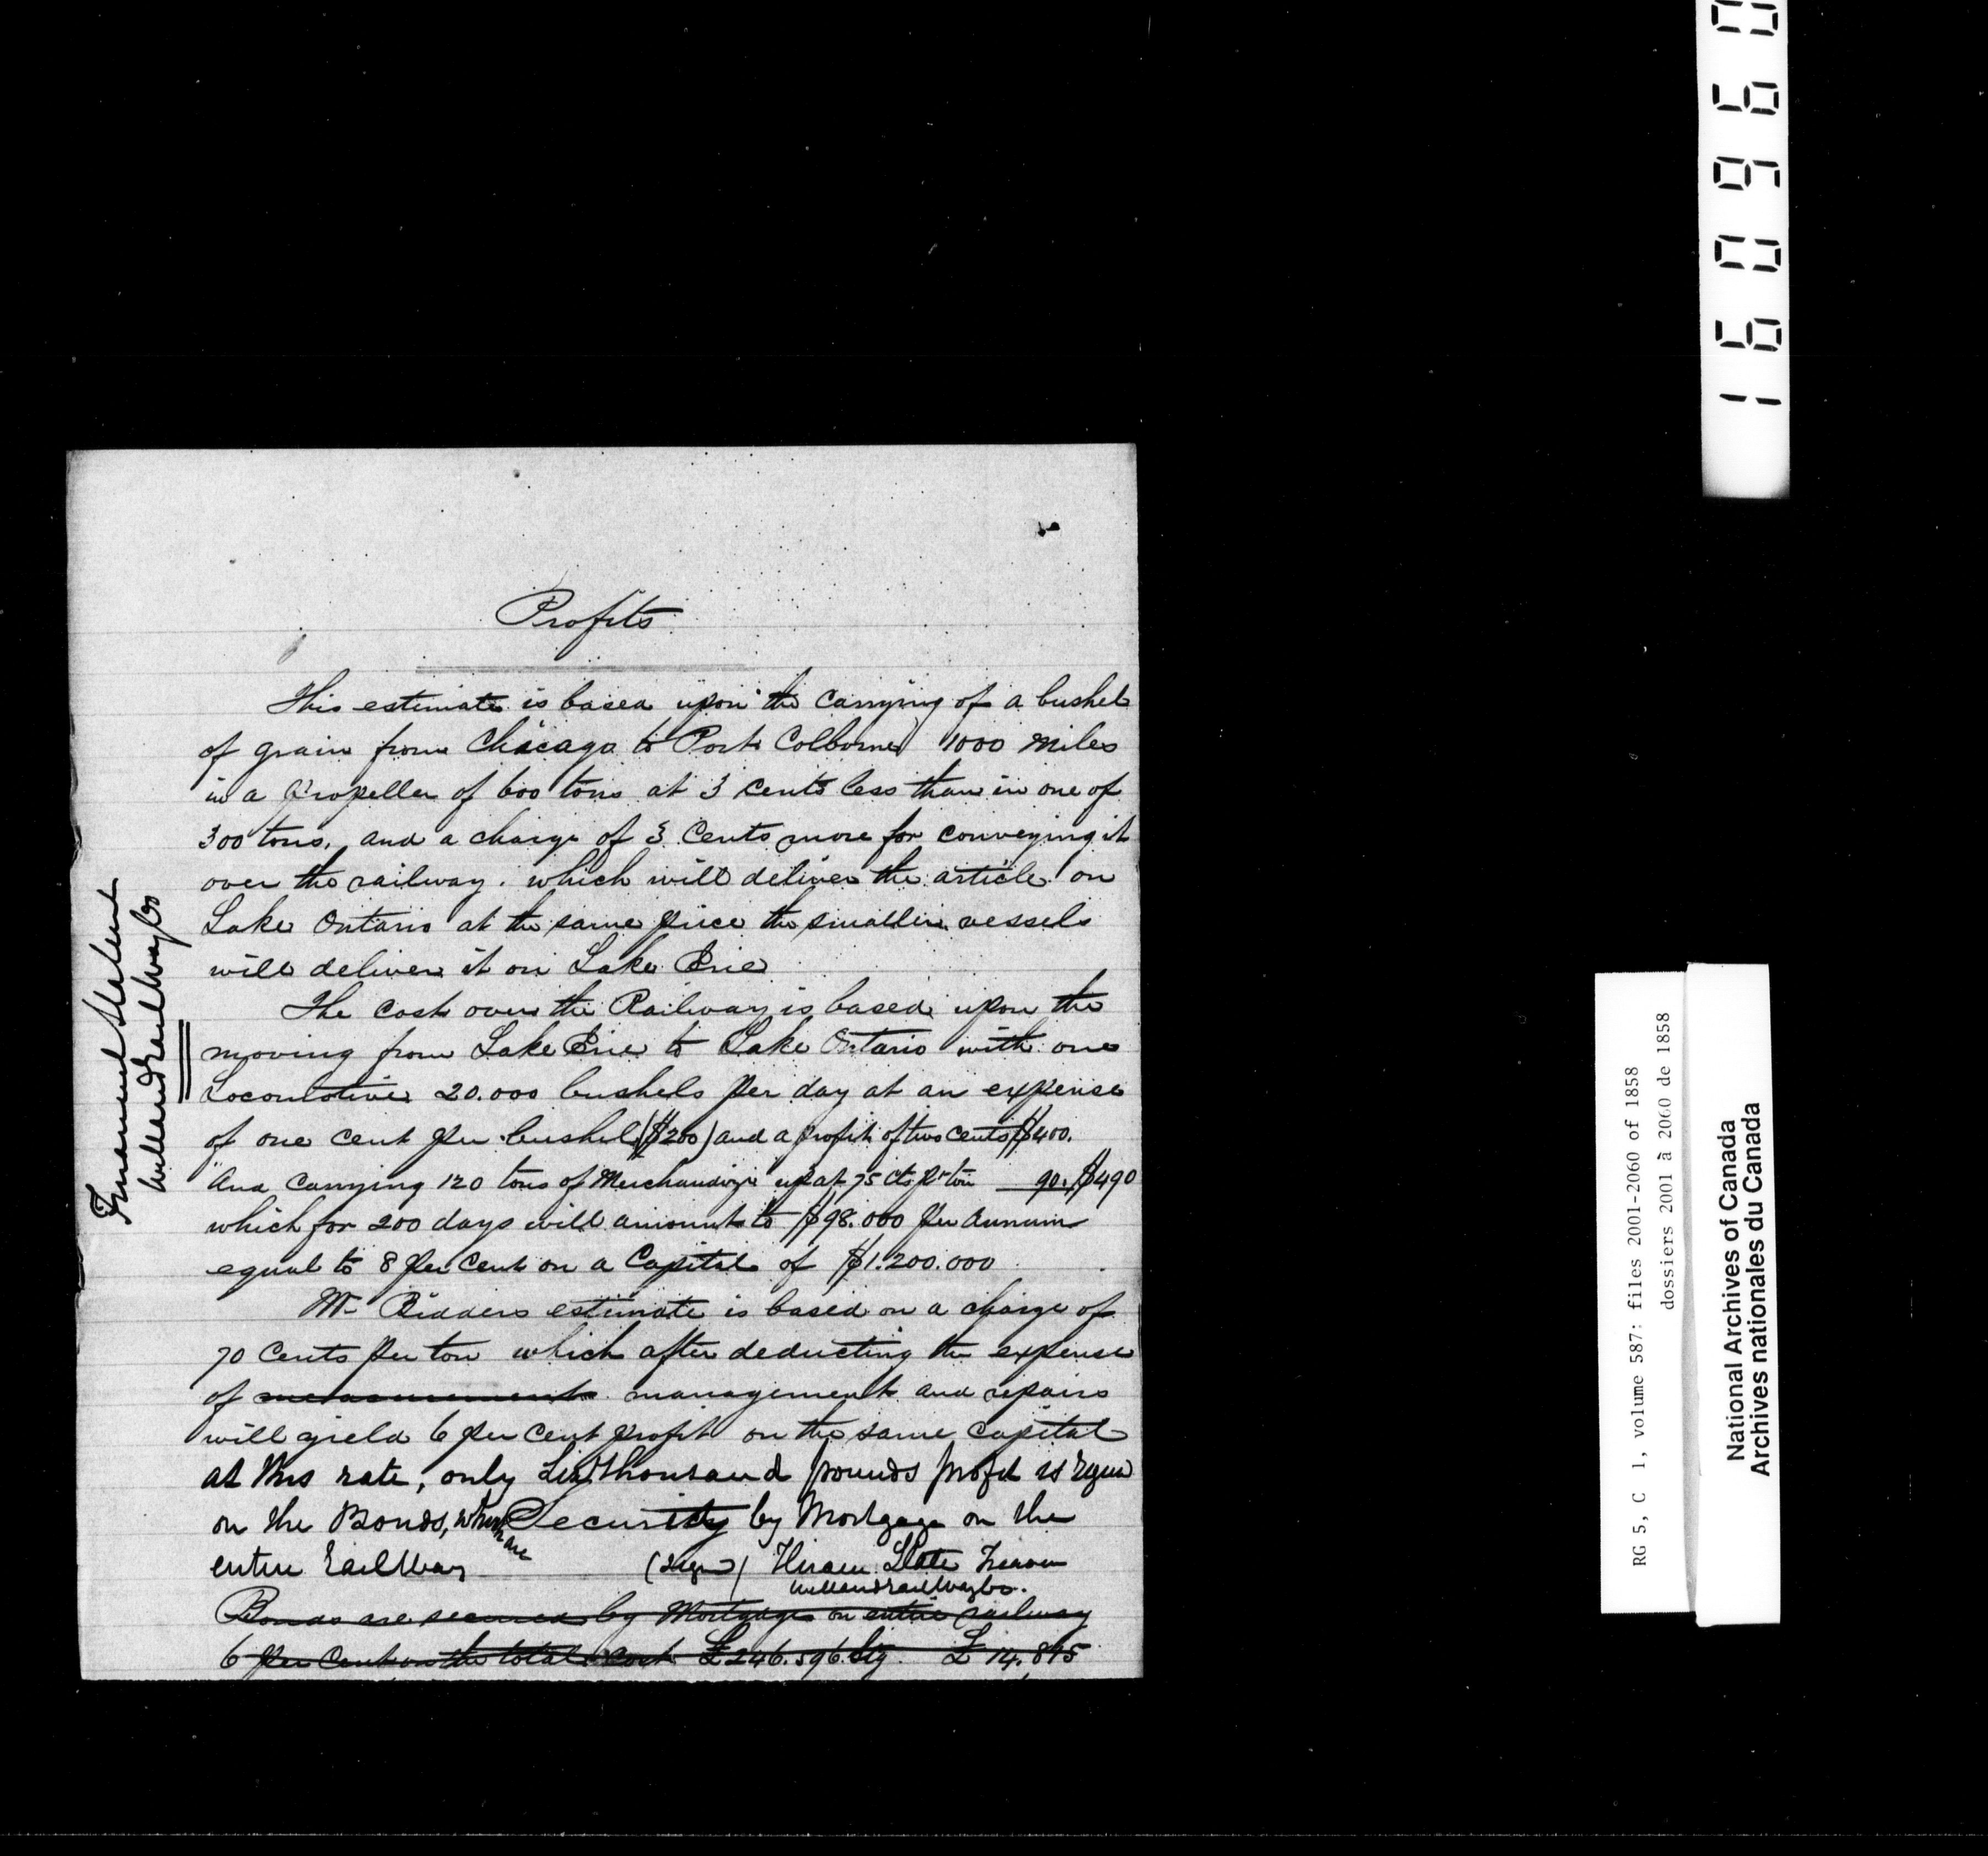 Profits
This estimate is based upon the carrying of a bushel
of grain from Chicago to Port Colborne 1000 miles
in a Propeller of 600 tons at 3 cents less than in one of
300 tons, and a charge of 3 Cents more for conveying it
over the railway. which will deliver the article on
Lake Ontario at the same price the smaller vessels
will deliver it on Lake Erie
The cost over the Railway is based upon the
moving from Lake Erie to Lake Ontario with one
Locomotive 20.000 bushels per day at an expense
of one cent per bushel ($200) and a profit of two cents $400.
And carrying 120 tons of Merchandize up at 75 cts pr ton 90. $490
which for 200 days will amount to $98.000 per Annum
equal to 8 per cent on a Capital of $1.200.000
Mr Bidders estimate is based on a charge of
70 Cents per ton which after deducting the expense
of management and repairs
will yield 6 per cent profit on the same capital
at this rate, only thousand pounds profit is
on the Bonds, which are Security by Mortgage on the
entire Railway (Sign) Hiram Slate
Welland Railway Co.
Bonds are secured by Mortgage on entire railway
6 per Cent on the total cost £246.596. Stg. £14.895
Financial Statement
Welland Railway Co
160960
RG 5, C 1, volume 587: files 2001-2060 of 1858
dossiers 2001 à 2060 de 1858
National Archives of Canada
Archives nationales du Canada